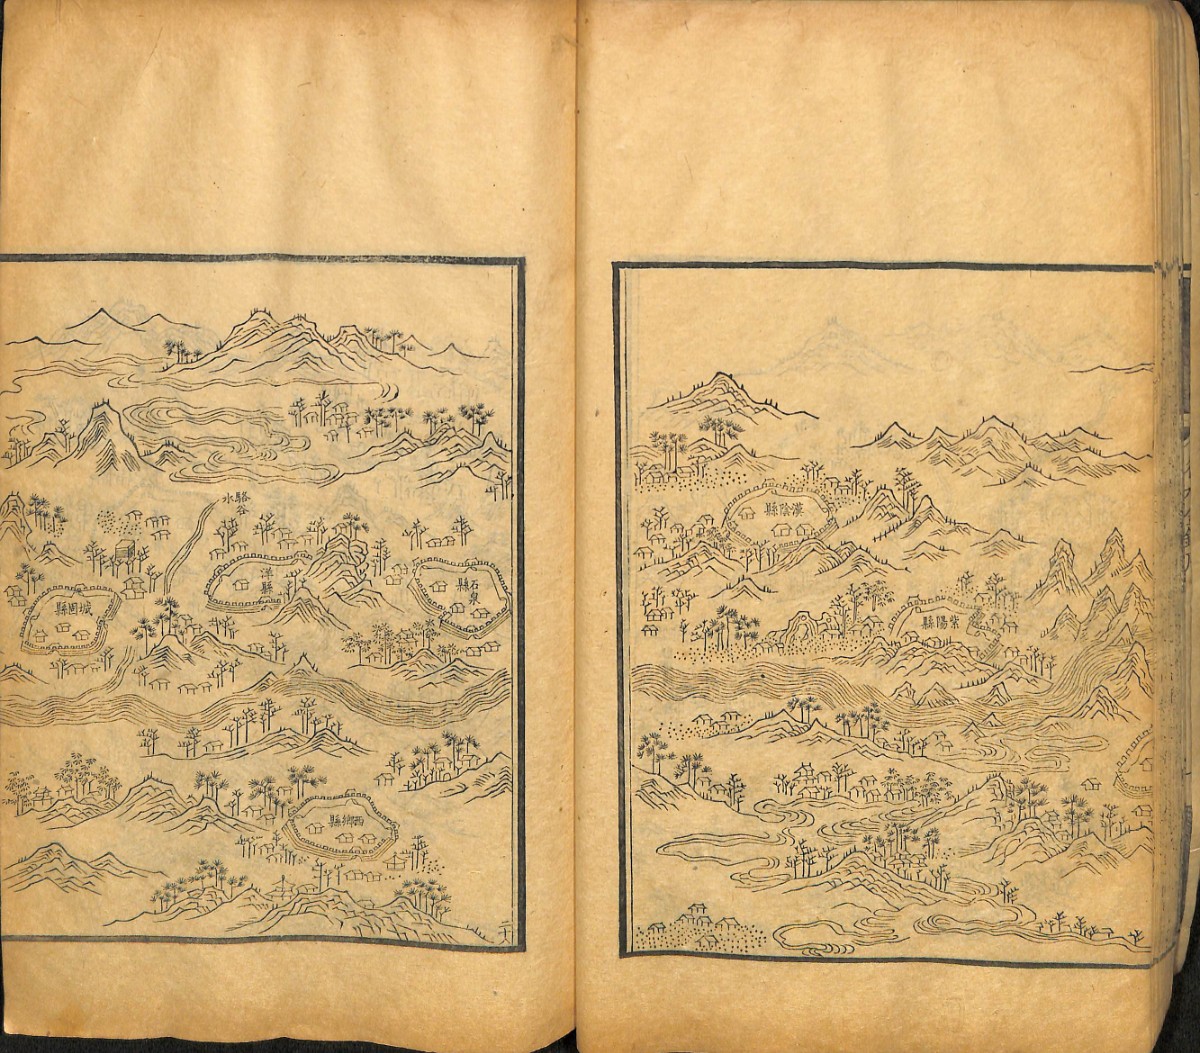 漢陰縣
紫陽縣
駱谷水
石泉縣
洋縣
城固縣
西鄉縣